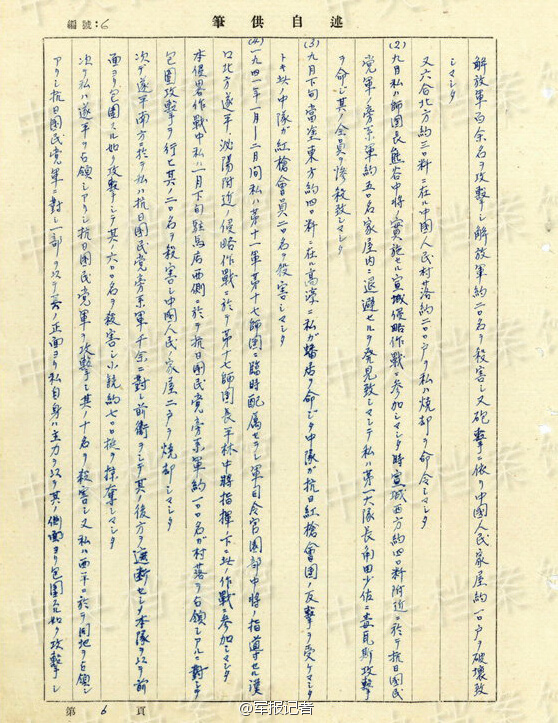 述自供筆
編號:6
解放軍百余名ヲ攻撃シ解放軍約二〇名ヲ殺害シ又砲撃ニ依リ中國人民家屋約一〇戸ヲ破壊致
シマシタ
又六合北方約三〇粁ニ在ル中國人民村落約二〇〇戸ヲ私ハ焼却ヲ命令シマシタ
(2)九月私ハ師團長熊谷中將ノ実施セル宣城侵略作戰ニ参加シマシタ時宣城西方約四〇粁附近ニ於テ抗日國民
党軍ノ旁系軍約五〇名家屋内ニ退避セルヲ発見致シマシテ私ハ第一大隊長角田少佐ニ毒瓦斯攻撃
ヲ命ジ其ノ全員ヲ惨殺致シマシタ
(3)九月下旬當塗東方約四〇粁ニ在ル高淳ニ私ガ蟠居ヲ命ジタ中隊ガ抗日紅槍會團ノ反撃ヲ受ケマシタ
トキ此ノ中隊ガ紅槍會員二〇名ヲ殺害シマシタ
(4)一九四一年一月ー二月間私ハ第十一軍第十七師團ニ臨時配属セラレ軍司令官園部中將ノ指導セル漢
口北方遂平、泌陽附近ノ侵略作戰ニ於テ第十七師團長平林中將指揮下ニ此ノ作戰ニ参加シマシタ
本侵略作戰中私ハ一月下旬駐馬店西側ニ於テ抗日國民党旁系軍約一〇〇名ガ村落ヲ占領シアルニ對シテ
包囲攻撃ヲ行セ其ノ二〇名ヲ殺害シ中國人民ノ家屋二戸ヲ焼却シマシタ
次デ遂平南方ニ於テ私ハ抗日國民党旁系軍千余ニ對シ前衛ヲシテ其ノ後方ヲ遮断セシメ本隊ヲ以テ前
面ヨリ包囲シル如ク攻撃シテ其ノ六〇〇名ヲ殺害シ小銃約七〇〇挺ヲ掠奪シマシタ
次ヲ私ハ遂平ヲ占領シアリシ抗日國民党軍ヲ攻撃シ其ノ十名ヲ殺害シ又私ハ西平ニ於テ同地ヲ占領シ
アリシ抗日國民党軍ニ對シ一部ヲ以テ其ノ正面ヨリ私自身ハ主力ヲ以テ其ノ側面ヨリ包囲スル如ク攻撃シ
第 6 頁
@军报记者